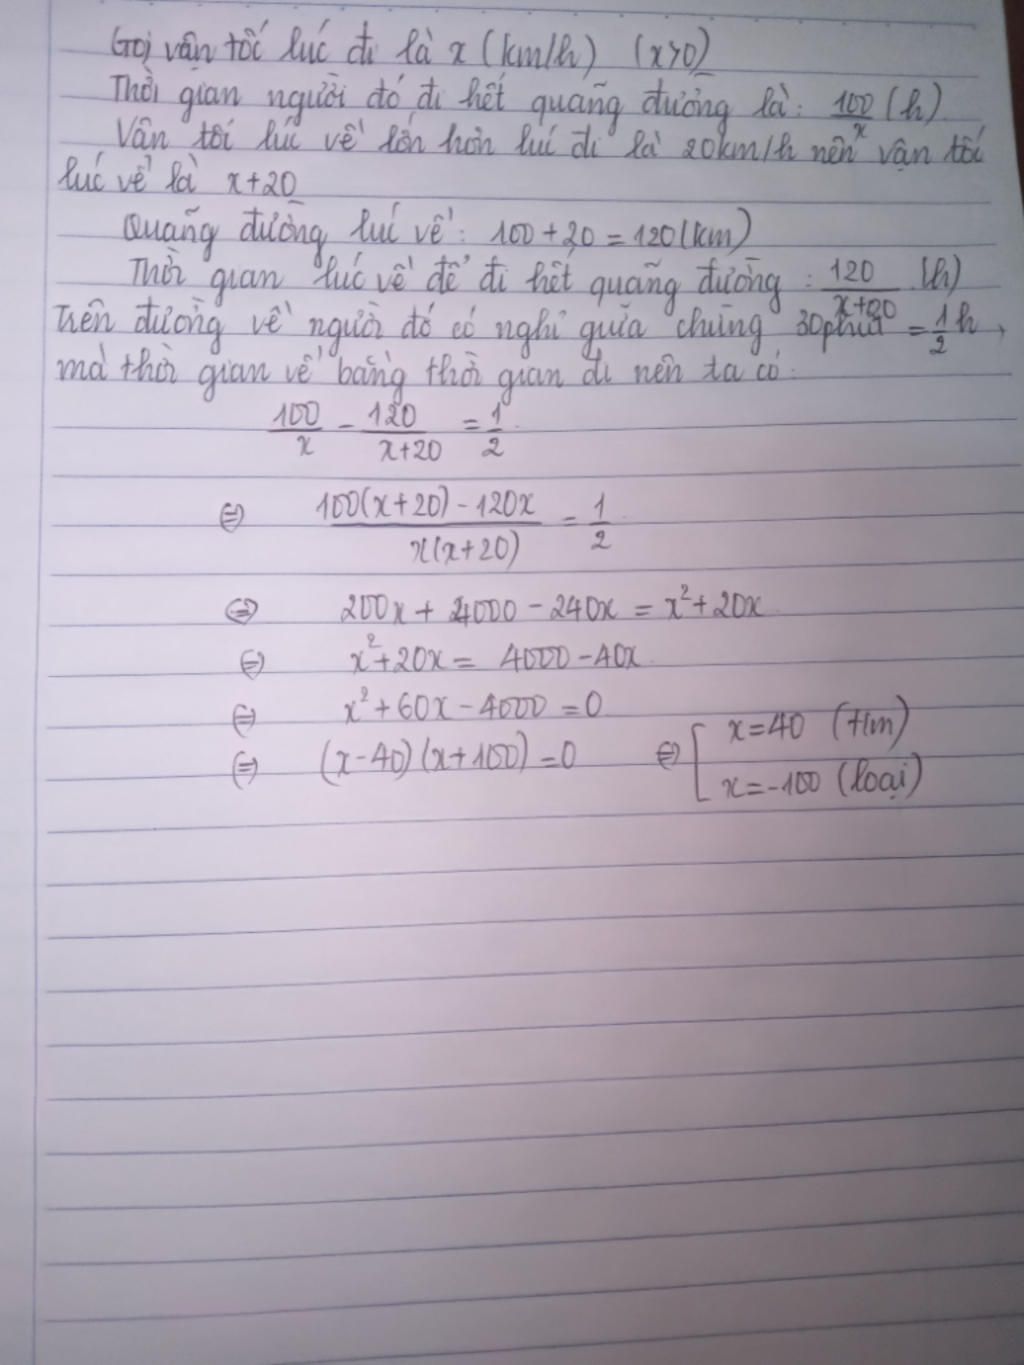 Gọi vận tốc lúc đi là x (km/h) (x>0)
Thời gian người đó đi hết quãng đường là: 100/x (h)
Vân tốc lúc về lớn hơn lúc đi là 20km/h nên vận tốc
lúc về là x+20
Quãng đường lúc về: 100+20=120(km)
Thời gian lúc về để đi hết quãng đường: 120/(x+20) (h)
Trên đường về người đó có nghỉ giữa chừng 30phút = 1/2 h,
mà thời gian về bằng thời gian đi nên ta có:
100/x - 120/(x+20) = 1/2
⇔ (100(x+20) - 120x)/(x(x+20)) = 1/2
⇔ 200x + 4000 - 240x = x² + 20x
⇔ x² + 20x = 4000 - 40x
⇔ x² + 60x - 4000 = 0
⇔ (x-40)(x+100) = 0 ⇔ [ x=40 (t/m)
x=-100 (loại)